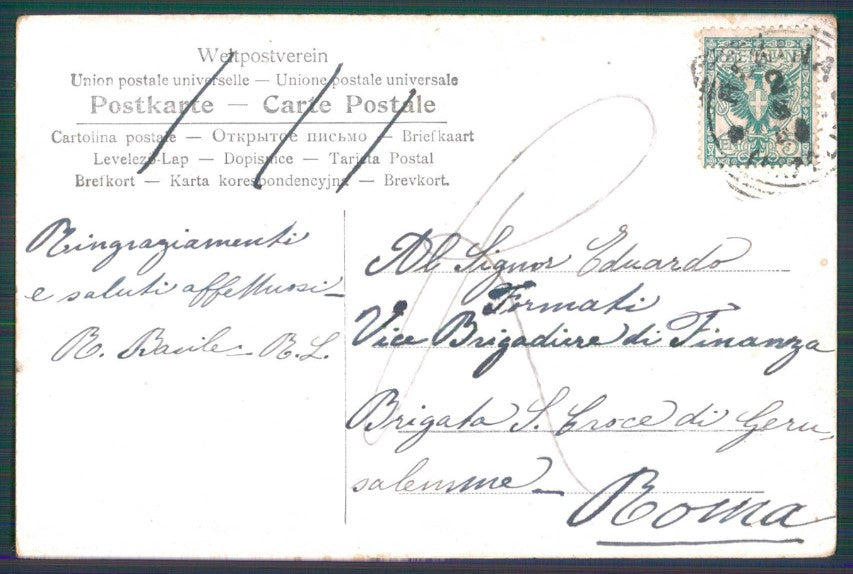 Weltpostverein
Union postale universelle — Unione postale universale
Postkarte — Carte Postale
Cartolina postale — Открытое письмо — Briefkaart
Levelező-Lap — Dopisnice — Tarjeta Postal
Brefkort — Karta korespondencyjna — Brevkort.
Ringraziamenti
e saluti affettuosi—
R. Basile— R. L.
Al Signor Eduardo
Formati
Vice Brigadiere di Finanza
Brigata S. Croce di Geru,
salemme—
Roma